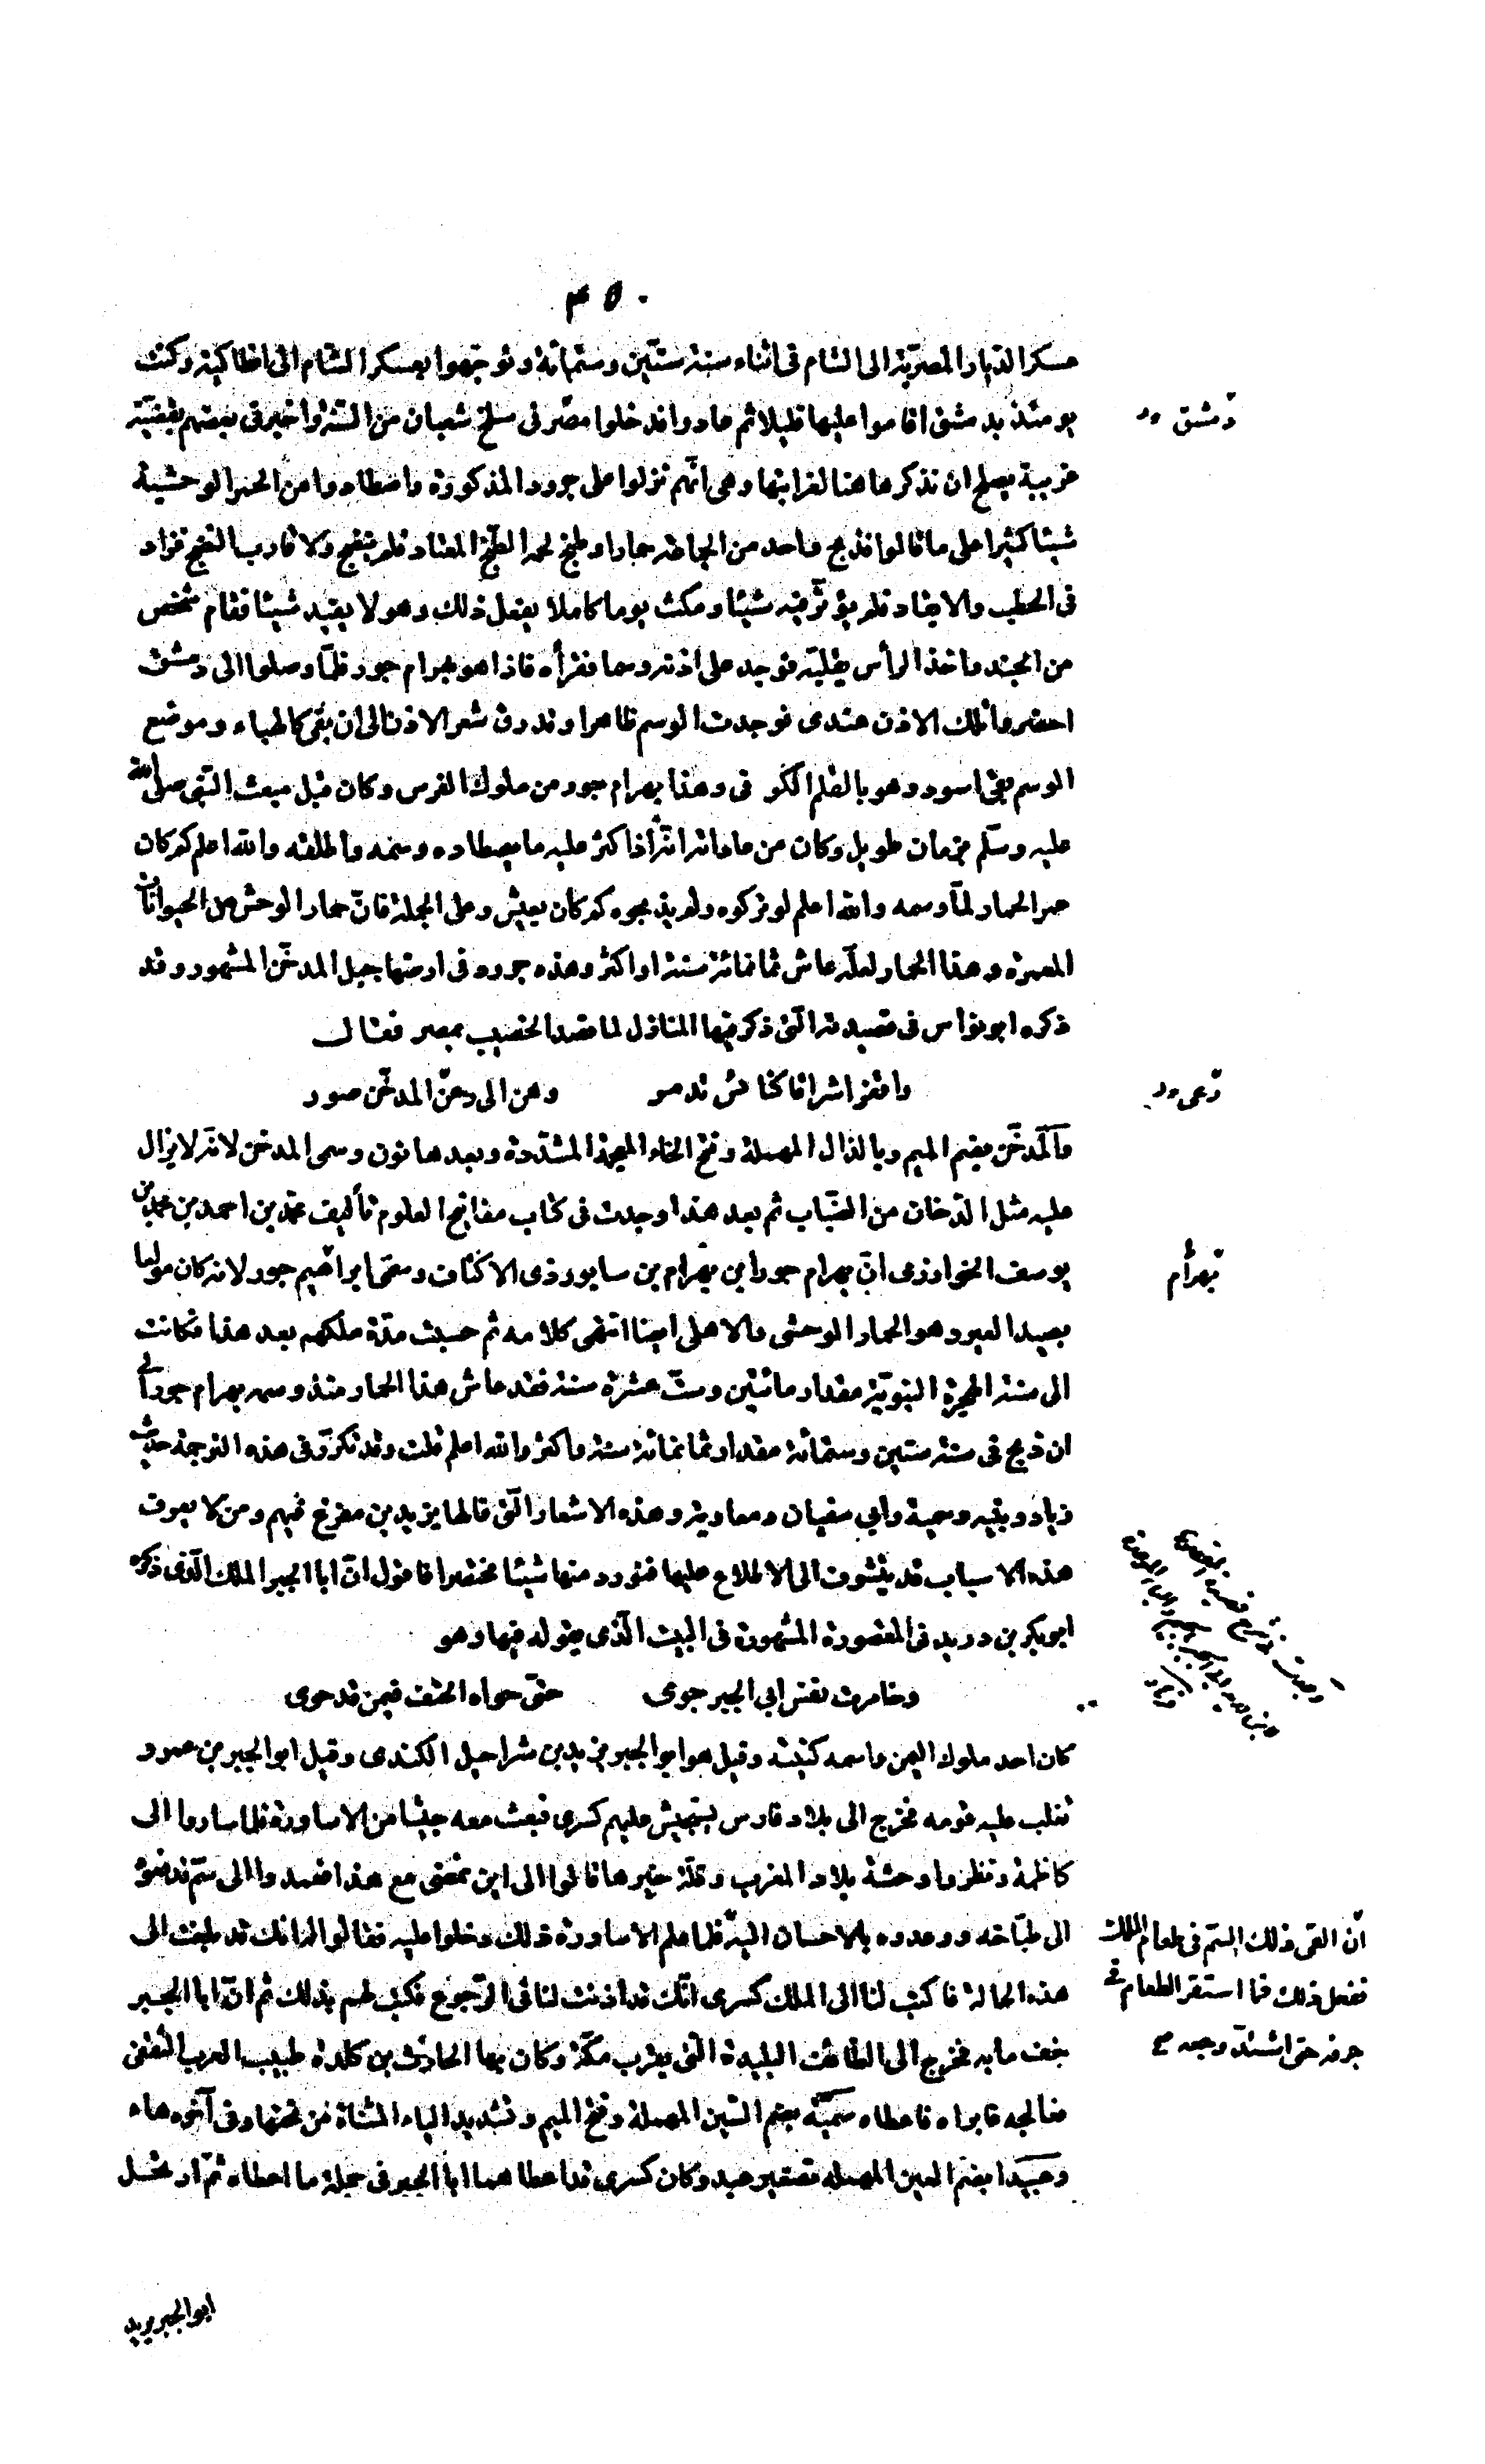 ٤٥٠
عسكر الديار المصريّة الى الشام فى اثناء سنة ستّين وستمائة وتوجّهوا بعسكر الشام الى انطاكية وكنت
يومئذ بدمشق اقاموا عليها قليلا ثم عادوا فدخلوا مصر فى سلخ شعبان من السّنة واخبرنى بعضهم بقضيّة
غريبة يصلح ان نذكرها هنا لغرابتها وهى انّهم نزلوا على جرود المذكورة واصطادوا من الحمر الوحشية
شيئا كثيرا على ما قالوا فذبح واحد من الجماعة حمارا وطبخ لحمه الطّبخ المعتاد فلم ينضج ولا قارب النضج فزاد
فى الحطب والايقاد فلم يؤثّر فيه شيئا ومكث يوما كاملا يفعل ذلك وهو لا يفيد شيئا فقام شخص
من الجند واخذ الرأس يقلّبه فوجد على اذنه وسما فقرأه فاذا هو بهرام جور فلمّا وصلوا الى دمشق
احضروا تلك الاذن عندى فوجدت الوسم ظاهرا وقد رق شعر الاذن الى ان بقى كالهباء وموضع
الوسم بقى اسود وهو بالقلم الكوفى وهذا بهرام جور من ملوك الفرس وكان قبل مبعث النّبى صلى الله
عليه وسلّم بزمان طويل وكان من عاداته انّه اذا كثر عليه ما يصطاده وسمه واطلقه والله اعلم كم كان
عمر الحمار لمّا وسمه والله اعلم لو تركوه ولم يذبحوه كم كان يعيش وعلى الجملة فانّ حمار الوحش من الحيوانات
المعمرة وهذا الحمار لعلّه عاش ثمانمائة سنة او اكثر وهذه جرود فى ارضها جبل المدخّن المشهور وقد
ذكره ابو نواس فى قصيدته الّتى ذكر فيها المنازل لما قصد الخصيب بمصر فقال
وافين اشراقا كنائس تدمر وهن الى رعن المدخّن صور
والمدخّن بضم الميم وبالدال المهملة وفتح الخاء المعجمة المشدّدة وبعدها نون وسمى المدخن لانه لا يزال
عليه مثل الدّخان من الضّباب ثم بعد هذا وجدت فى كتاب مفاتيح العلوم تأليف محمّد بن احمد بن محمّد بن
يوسف الخوارزمى انّ بهرام جور ابن بهرام بن سابور ذى الاكتاف وسمّى بهرام جور لانه كان مولعا
بصيد العير وهو الحمار الوحشى والاهلى ايضا انتهى كلامه ثم حسبت مدّة ملكهم بعد هذا فكانت
الى سنة الهجرة النبويّة مقدار مائتين وستّ عشرة سنة فقد عاش هذا الحمار منذ وسمه بهرام جور الى
ان ذبح فى سنة ستين وستمائة مقدار ثمانمائة سنة واكثر والله اعلم قلت وقد تكرّر فى هذه الترجمة حديث
زياد وبنيه وسمية وابى سفيان ومعاوية وهذه الاشعار الّتى قالها يزيد بن مفرغ فيهم ومن لا يعرف
هذه الاسباب قد يتشوف الى الاطلاع عليها فنورد منها شيئا مختصرا فاقول انّ ابا الجبر الملك الّذى ذكره
ابو بكر بن دريد فى المقصورة المشهورة فى البيت الّذى يقوله فيها وهو
وخامرت نفس ابى الجبر جوى حتّى حواه الحتف فيمن قد حوى
كان احد ملوك اليمن واسمه كنيته وقيل هو ابو الجبر يزيد بن شراحيل الكندى وقيل ابو الجبر بن عمرو
تغلب عليه قومه فخرج الى بلاد فارس يستجيش عليهم كسرى فبعث معه جيشا من الاساورة فلما ساروا الى
كاظمة ونظروا وحشة بلاد العرب وقلّة خيرها قالوا الى اين نمضى مع هذا فعمدوا الى سمّ فدفعوه
الى طبّاخه ووعدوه بالاحسان اليه فلما علم الاساورة ذلك دخلوا عليه فقالوا له انك قد بلغت الى
هذه الحالة فاكتب لنا الى الملك كسرى انّك قد اذنت لنا فى الرّجوع فكتب لهم بذلك ثم انّ ابا الجبر
خف ما به فخرج الى الطائف البليدة الّتى بقرب مكّة وكان بها الحارث بن كلدة طبيب العرب الثّقفى
فعالجه فابراه فاعطاه سميّة بضم السّين المهملة وفتح الميم وتشديد الياء المثناة من تحتها وفى آخره هاء
وعبيدا بضم العين المهملة تصغير عبد وكان كسرى قد اعطاهما ابا الجبر فى جملة ما اعطاه ثمّ ارتحل
دمشق
رعى
بهرام
ان القى ذلك السّم فى طعام الملك
ففعل ذلك فما استقر الطعام فى
جوفه حتى اشتدّ وجعه
ابو الجبر يريد